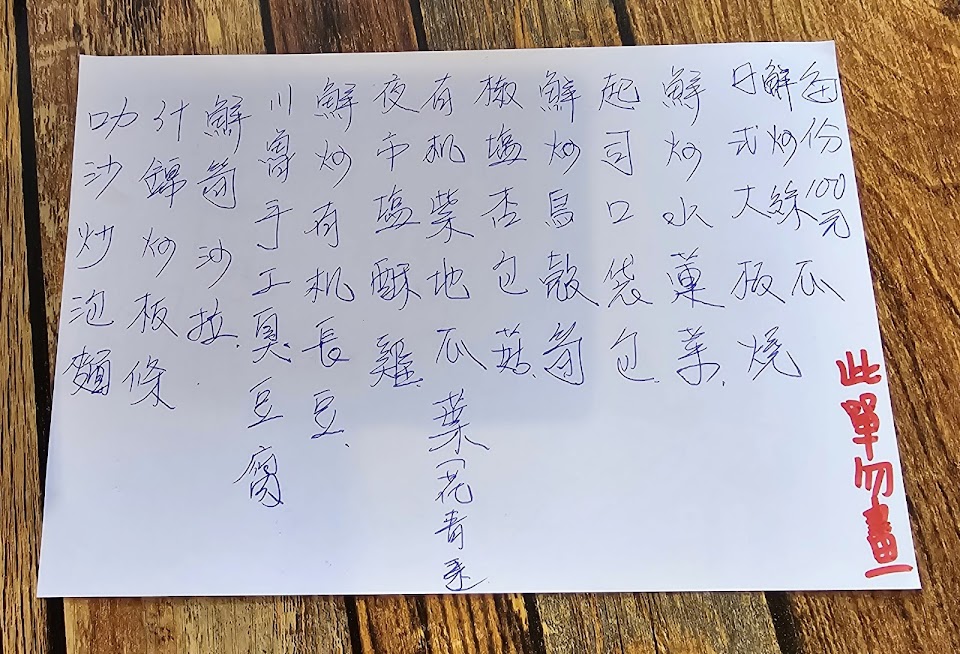 每份100元
鮮炒絲瓜
日式大板燒
鮮炒水蓮菜、
起司口袋包、
鮮炒烏殼筍
椒塩杏包菇、
有机紫地瓜葉(花青素)
夜市塩酥雞、
鮮炒有机長豆、
川魯手工臭豆腐
鮮筍沙拉、
什錦炒板條
叻沙炒泡麵
此單勿畫